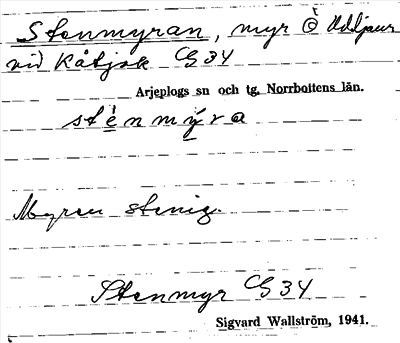 Stenmyran, myr ö Uddjaur
vid Kåtjok CG 34
Arjeplogs sn och tg. Norrbottens län.
stènmýra
Myren stenig.
Stenmyr CG 34
Sigvard Wallström, 1941.